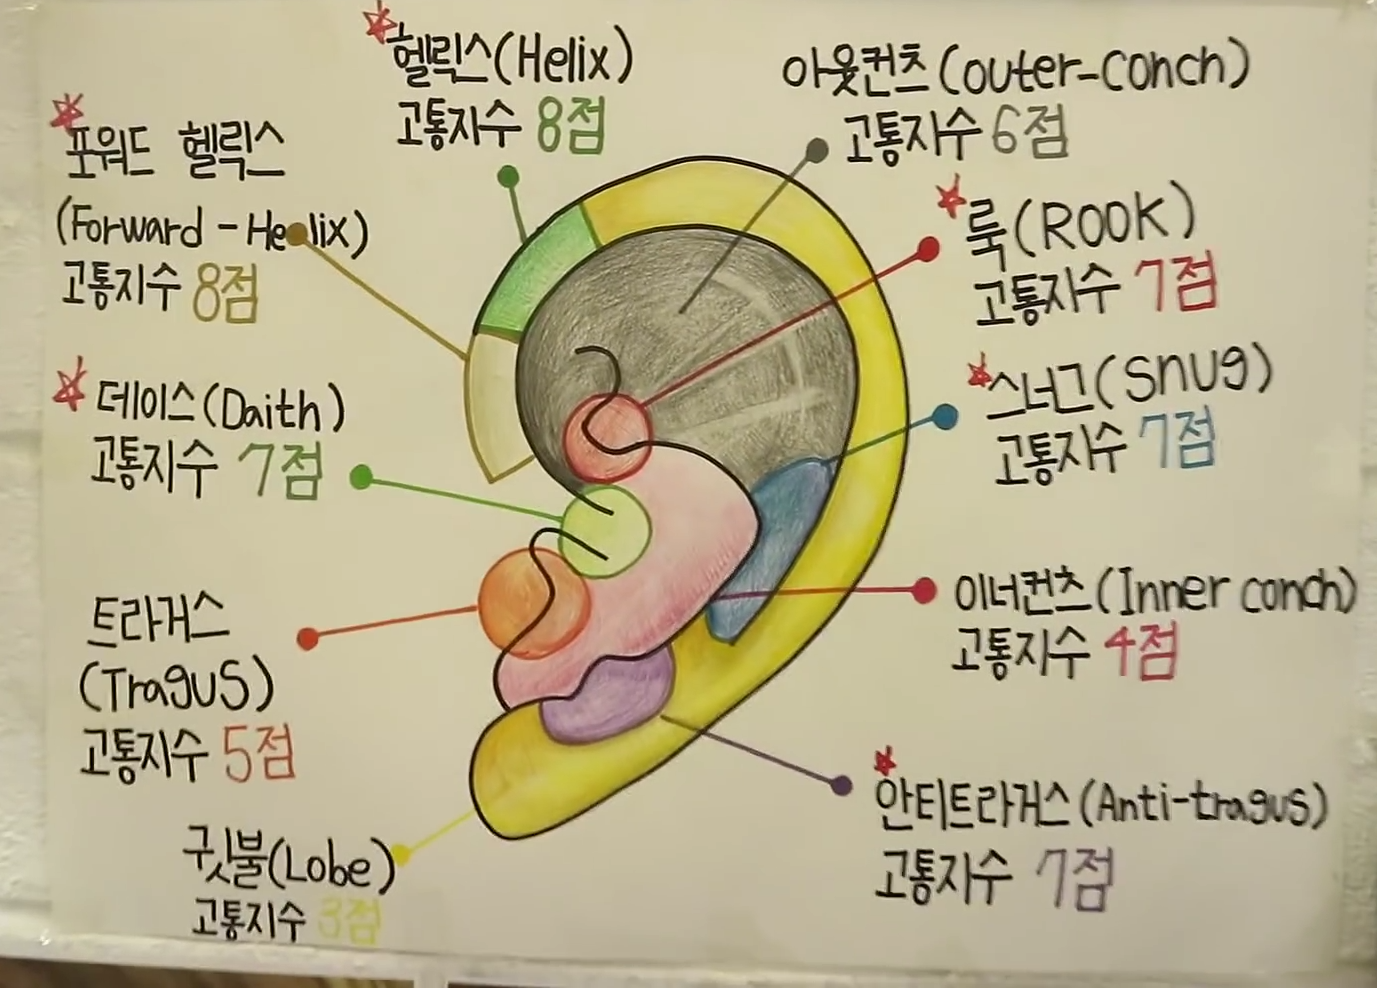 헬릭스(Helix)
고통지수 8점
아웃컨츠(outer-conch)
고통지수 6점
포워드 헬릭스
(Forward-Helix)
고통지수 8점
룩(ROOK)
고통지수 7점
데이스(Daith)
고통지수 7점
스너그(Snug)
고통지수 7점
트라거스
(Tragus)
고통지수 5점
이너컨츠(Inner conch)
고통지수 4점
안티트라거스(Anti-tragus)
고통지수 7점
귓불(Lobe)
고통지수 3점